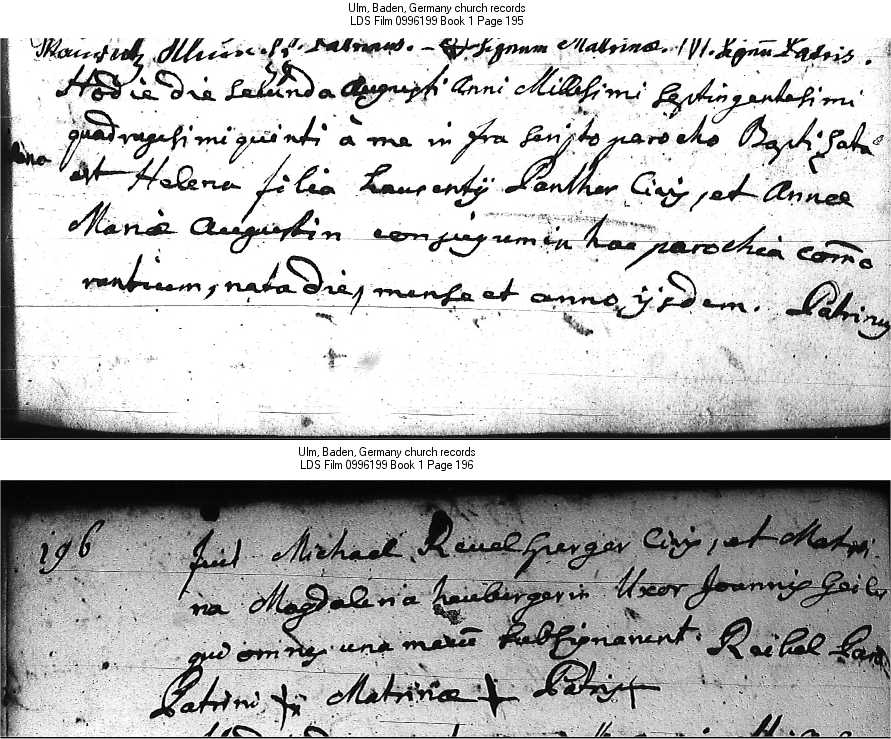 Ulm, Baden, Germany church records
LDS Film 0996199 Book 1 Page 195
Patrinus. – Signum Matrinæ. Signũ Patris.
Hodie die secunda Augusti Anni Millesimi Septingentesimi
quadragesimi quinti à me in fra scripto parocho Baptisata
est Helena filia Laurentij Panther Civis, et Annæ
Mariæ Augustin conjugum in hac parochia com̃o
rantium, nata die, mense et anno ijsdem. Patrinus
Ulm, Baden, Germany church records
LDS Film 0996199 Book 1 Page 196
196
fuit Michael Civis, et Matri
na Magdalena haubergerin Uxor Joannis Geiler
qui omnes una mecũ subsignarunt.
Patrini Matrinæ Patris